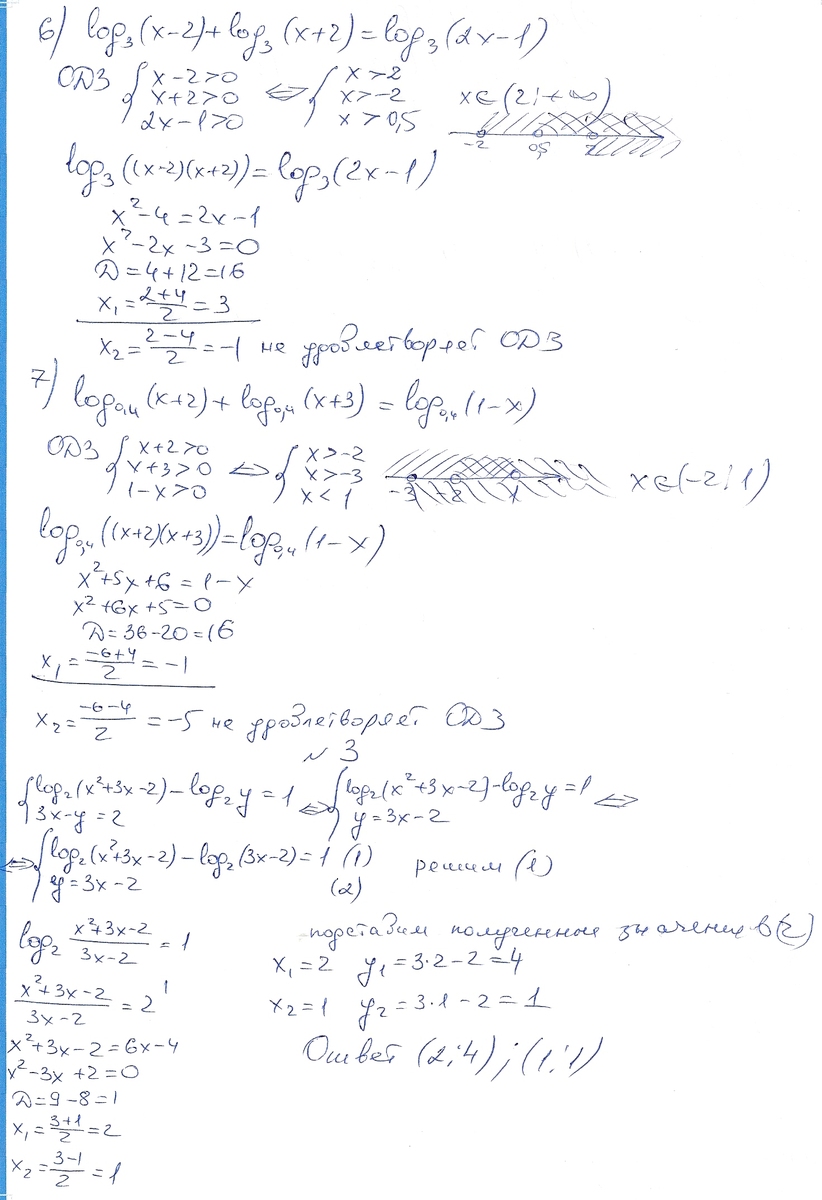 6) log₃(x-2)+log₃(x+2)=log₃(2x-1)
ОДЗ { x-2>0 ⇔ { x>2
x+2>0 x>-2 x∈(2;+∞)
2x-1>0 x>0,5
-2 0,5 2
log₃((x-2)(x+2))=log₃(2x-1)
x²-4=2x-1
x²-2x-3=0
D=4+12=16
x₁=(2+4)/2=3
x₂=(2-4)/2=-1 не удовлетворяет ОДЗ
7) log₀,₄(x+2)+log₀,₄(x+3)=log₀,₄(1-x)
ОДЗ { x+2>0 ⇔ { x>-2
x+3>0 x>-3 x∈(-2;1)
1-x>0 x<1
-3 -2 1
log₀,₄((x+2)(x+3))=log₀,₄(1-x)
x²+5x+6=1-x
x²+6x+5=0
D=36-20=16
x₁=(-6+4)/2=-1
x₂=(-6-4)/2=-5 не удовлетворяет ОДЗ
№ 3
{ log₂(x²+3x-2)-log₂y=1 ⇔ { log₂(x²+3x-2)-log₂y=1 ⇔
3x-y=2 y=3x-2
⇔ { log₂(x²+3x-2)-log₂(3x-2)=1 (1) решим (1)
y=3x-2 (2)
log₂ (x²+3x-2)/(3x-2) = 1
(x²+3x-2)/(3x-2) = 2¹
x²+3x-2=6x-4
x²-3x+2=0
D=9-8=1
x₁=(3+1)/2=2
x₂=(3-1)/2=1
подставим полученные значения в (2)
x₁=2 y₁=3·2-2=4
x₂=1 y₂=3·1-2=1
Ответ (2;4);(1;1)